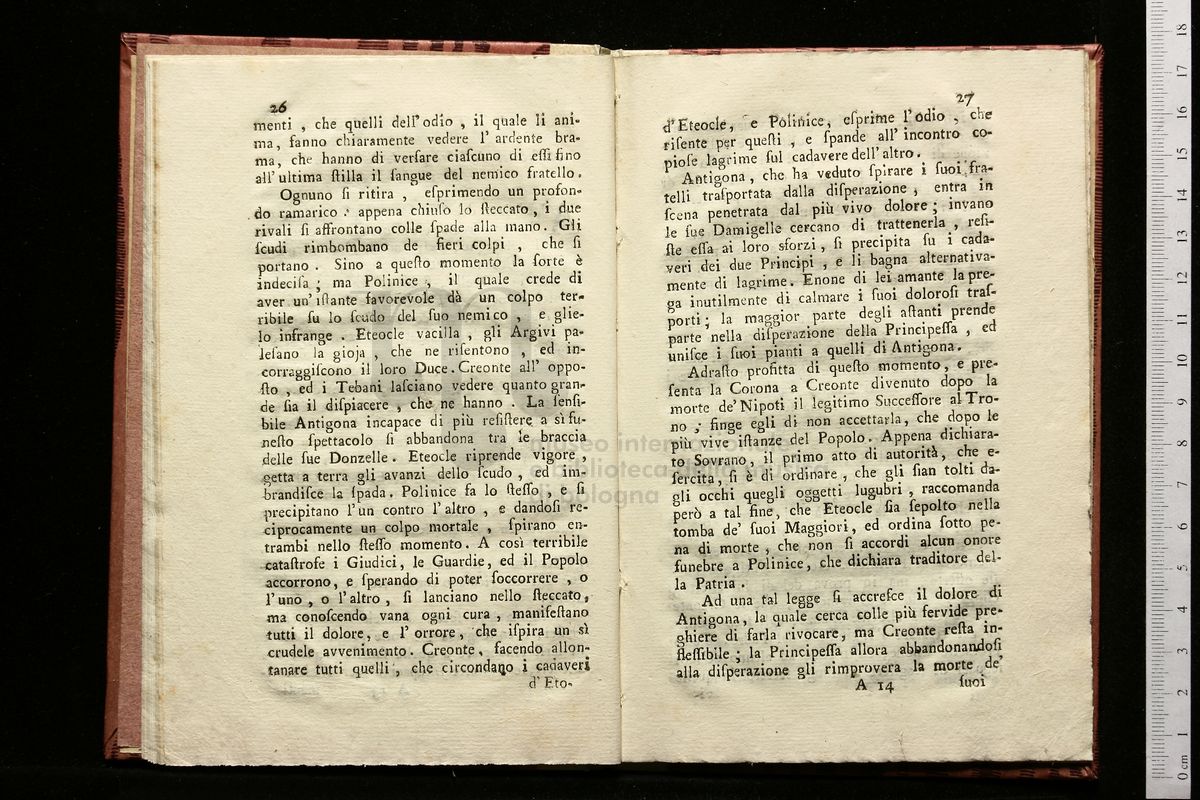 26
menti , che quelli dell' odio , il quale li ani-
ma, fanno chiaramente vedere l' ardente bra-
ma, che hanno di verſare ciaſcuno di eſſi fino
all' ultima ſtilla il ſangue del nemico fratello.
Ognuno ſi ritira , eſprimendo un profon-
do ramarico : appena chiuſo lo ſteccato , i due
rivali ſi affrontano colle ſpade alla mano. Gli
ſcudi rimbombano de fieri colpi , che ſi
portano . Sino a queſto momento la ſorte è
indeciſa ; ma Polinice , il quale crede di
aver un' iſtante favorevole dà un colpo ter-
ribile ſu lo ſcudo del ſuo nemico , e glie-
lo infrange . Eteocle vacilla , gli Argivi pa-
leſano la gioja , che ne riſentono , ed in-
corraggiſcono il loro Duce. Creonte all' oppo-
ſto , ed i Tebani laſciano vedere quanto gran-
de ſia il diſpiacere , che ne hanno . La ſenſi-
bile Antigona incapace di più reſiſtere a sì fu-
neſto ſpettacolo ſi abbandona tra le braccia
delle ſue Donzelle . Eteocle riprende vigore ,
getta a terra gli avanzi dello ſcudo , ed im-
brandiſce la ſpada . Polinice fa lo ſteſſo , e ſi
precipitano l' un contro l' altro , e dandoſi re-
ciprocamente un colpo mortale , ſpirano en-
trambi nello ſteſſo momento . A così terribile
cataſtrofe i Giudici, le Guardie, ed il Popolo
accorrono, e ſperando di poter ſoccorrere , o
l' uno , o l' altro , ſi lanciano nello ſteccato,
ma conoſcendo vana ogni cura , manifeſtano
tutti il dolore, e l' orrore, che iſpira un sì
crudele avvenimento . Creonte, facendo allon-
tanare tutti quelli , che circondano i cadaveri
d' Eto-
27
d' Eteocle, e Polinice, eſprime l' odio , che
riſente per queſti , e ſpande all' incontro co-
pioſe lagrime ſul cadavere dell' altro .
Antigona , che ha veduto ſpirare i ſuoi fra-
telli traſportata dalla diſperazione , entra in
ſcena penetrata dal più vivo dolore ; invano
le ſue Damigelle cercano di trattenerla , reſi-
ſte eſſa ai loro sforzi , ſi precipita ſu i cada-
veri dei due Principi , e li bagna alternativa-
mente di lagrime. Enone di lei amante la pre-
ga inutilmente di calmare i ſuoi doloroſi traſ-
porti ; la maggior parte degli aſtanti prende
parte nella diſperazione della Principeſſa , ed
uniſce i ſuoi pianti a quelli di Antigona .
Adraſto profitta di queſto momento, e pre-
ſenta la Corona a Creonte divenuto dopo la
morte de' Nipoti il legitimo Succeſſore al Tro-
no ; finge egli di non accettarla, che dopo le
più vive iſtanze del Popolo . Appena dichiara-
to Sovrano, il primo atto di autorità, che e-
ſercita, ſi è di ordinare , che gli ſian tolti da-
gli occhi quegli oggetti lugubri , raccomanda
però a tal fine, che Eteocle ſia ſepolto nella
tomba de' ſuoi Maggiori, ed ordina ſotto pe-
na di morte , che non ſi accordi alcun onore
funebre a Polinice, che dichiara traditore del-
la Patria .
Ad una tal legge ſi accreſce il dolore di
Antigona, la quale cerca colle più fervide pre-
ghiere di farla rivocare, ma Creonte reſta in-
fleſſibile ; la Principeſſa allora abbandonandoſi
alla diſperazione gli rimprovera la morte de'
A 14 ſuoi
museo internazionale
e biblioteca della musica
di bologna
0 cm 1 2 3 4 5 6 7 8 9 10 11 12 13 14 15 16 17 18